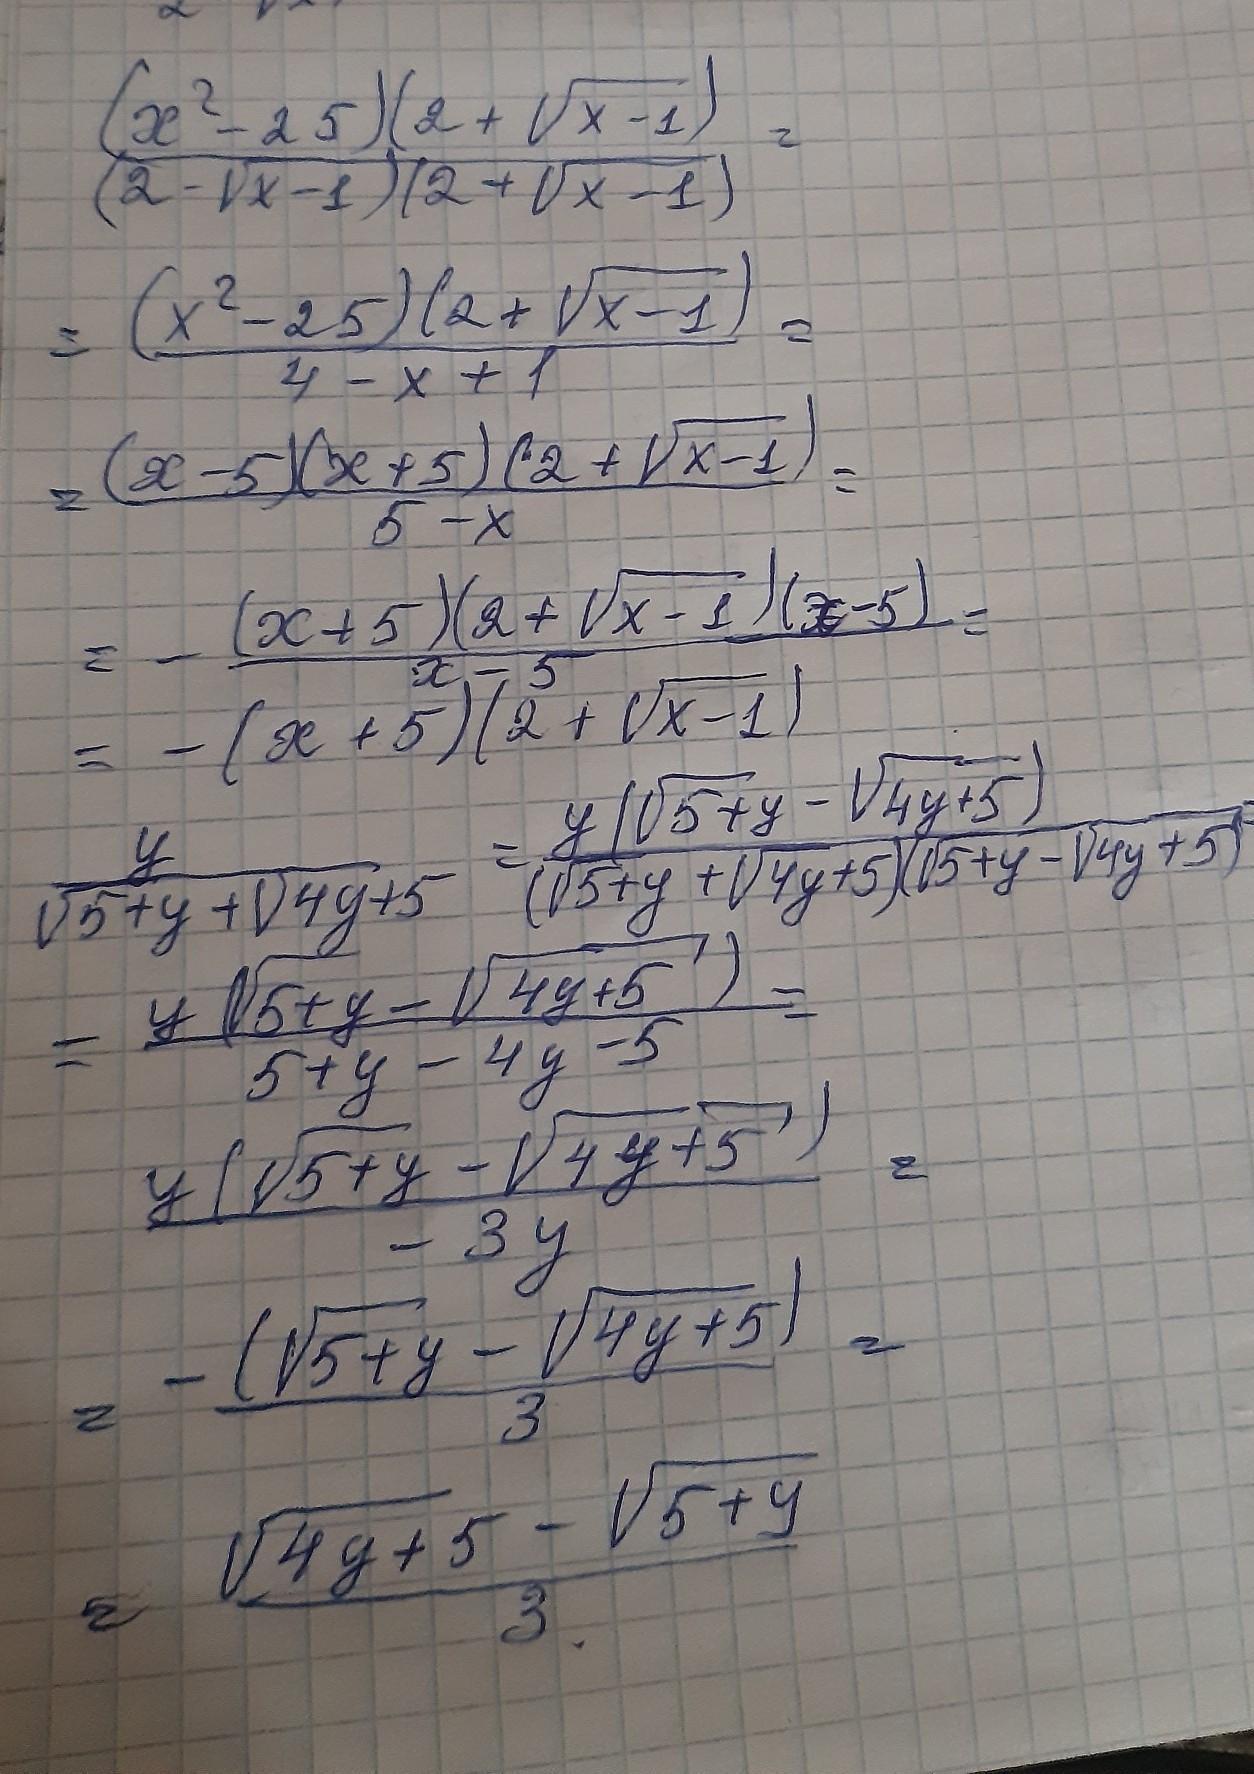 (x²-25)(2+√x-1) / (2-√x-1)(2+√x-1) =
= (x²-25)(2+√x-1) / 4-x+1 =
= (x-5)(x+5)(2+√x-1) / 5-x =
= -(x+5)(2+√x-1)(x-5) / x-5 =
= -(x+5)(2+√x-1)
y / √5+y+√4y+5 = y(√5+y-√4y+5) / (√5+y+√4y+5)(√5+y-√4y+5) =
= y(√5+y-√4y+5) / 5+y-4y-5 =
y(√5+y-√4y+5) / -3y =
= -(√5+y-√4y+5) / 3 =
= √4y+5-√5+y / 3.